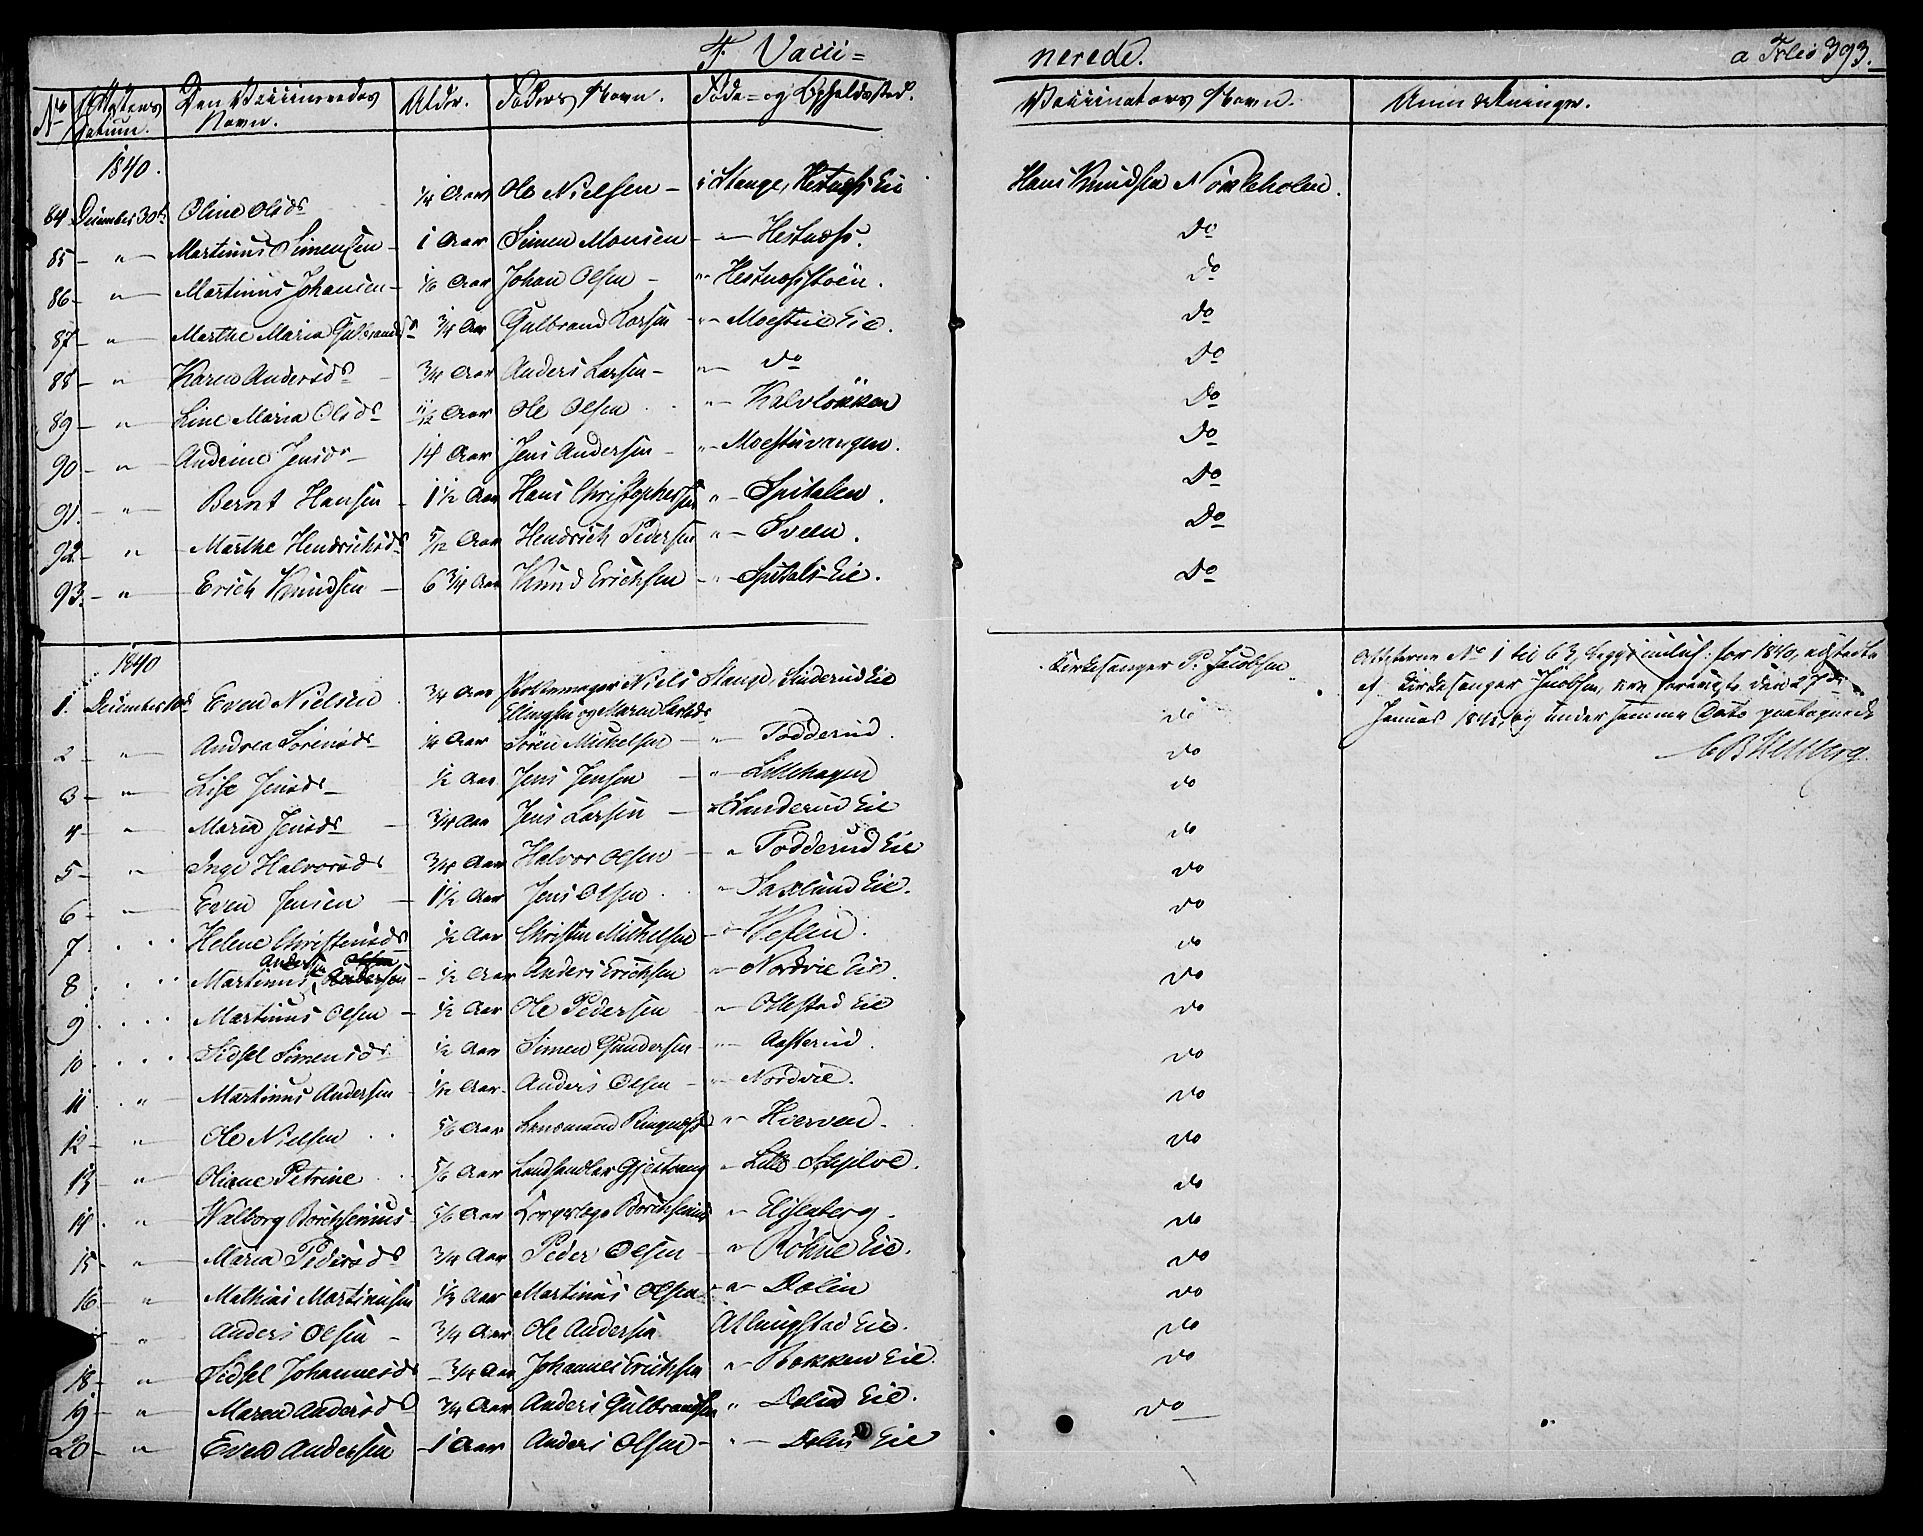 F. Vacci= nerede. a Folio 393.
No Attestens Datum. Den Vaccineredes Navn. Alder. Faders Navn. Føde- og Opholdssted. Vaccinateurs Navn. Anmærkninger.
1840.
84 December 30te Oline Olsdr 1/4 Aar Ole Nielsen - i Stange, Hestnæss Eie Hans Knudsen Norseholen.
85 - " - Martinus Simensen - 1 Aar Simen Monsen - " - Hestnæss. Do
86 - " - Martinus Johansen - 1/6 Aar Johan Olsen - " - Hestnæsstøen. Do
87 - " - Marthe Maria Gulbrandsdr 3/4 Aar Gulbrand Larsen - " - Moestue Eie. Do
88 - " Karen Andersdr - 3/4 Aar Anders Larsen - " - do Do
89 - " - Line Maria Olsdr 11/12 Aar Ole Olsen . " - Kalvløkken Do
90 - " - Andrine Jensdr - 14 Aar Jens Andersen - " - Moestuvangen. Do
91. - " - Bernt Hansen - 1 1/2 Aar Hans Christophersen " - Spitalen. Do
92 - " - Marthe Hendrichsdr 5/12 Aar Hendrich Pedersen " - Sveen. Do
93. - " - Erich Knudsen - 6 3/4 Aar Knud Erichsen - " - Spitals Eie. Do
1840
1. December 10de Even Nielsen . 3/4 Aar Niels Ellingsen og Maren Larsdr Stange, Sinderud Eie Kirkesanger P. Jacobsen Attesterne No 1 til 63, begge inclus: for 1840, udstædte
af Kirkesanger Jacobsen, ere foreviste den 27de
Januar 1841, og under samme Dato paategnede
CBHellberg.
2 - " - Andrea Sørensdr - 1/4 Aar Søren Michelsen - " - Fodderud. do
3 - " - Lise Jensdr - 1/2 Aar Jens Jensen - " - Lillehagen do
4 - " - Maria Jensdr - 3/4 Aar Jens Larsen - " Sanderud Eie do
5 - " - Inge Halvorsdr 3/4 Aar Halvor Olsen - " Fodderud Eie do
6 - " - Even Jensen - 1 1/2 Aar Jens Olsen . " - Saxlund Eie. do
7. . . . Helene Christensdr 1/2 Aar Christen Michelsen - " - Vesten. do
8. . . . Martinus Andersen - 1/2 Aar Anders Erichsen " - Nordvie Eie. do
9 . . . . Martinus Olsen - 1/2 Aar Ole Pedersen - " - Ollestad Eie do
10 . . . . Sidsel Simensdr 1/2 Aar Simen Gundersen - " - Aasterud. do
11. . " . Martinus Andersen - 1/12 Aar Anders Olsen - " - Nordvie. do
12 - " Ole Nielsen . . 5/6 Aar Lensmand Ringnæss " - Hverven. do
13 - " - Oliane Petrine . . 5/6 Aar Landhandler Gjestvang " - Lille Skjelve. do
14 . " - Walborg Borchsenius - 5/6 Aar Corpslæge Borchsenius " - Elisenberg. do
15 - " - Maria Pedersdr 3/4 Aar Peder Olsen - " - Røhne Eie. do
16 - " Mathias Martinusen 1/3 Aar Martinus Olsen - " - Dalin do
" Anders Olsen - 3/4 Aar Ole Andersen Atlungstad Eie. do
18 - " - Sidsel Johannesdr - 3/4 Aar Johannes Erichsen " - Bakken Eie. do
19 - " - Maren Andersdr 3/4 Aar Anders Gulbrandsen " - Dalin Eie. do
20 - " - Even Andersen - 1 Aar Anders Olsen - " - Dalin Eie do